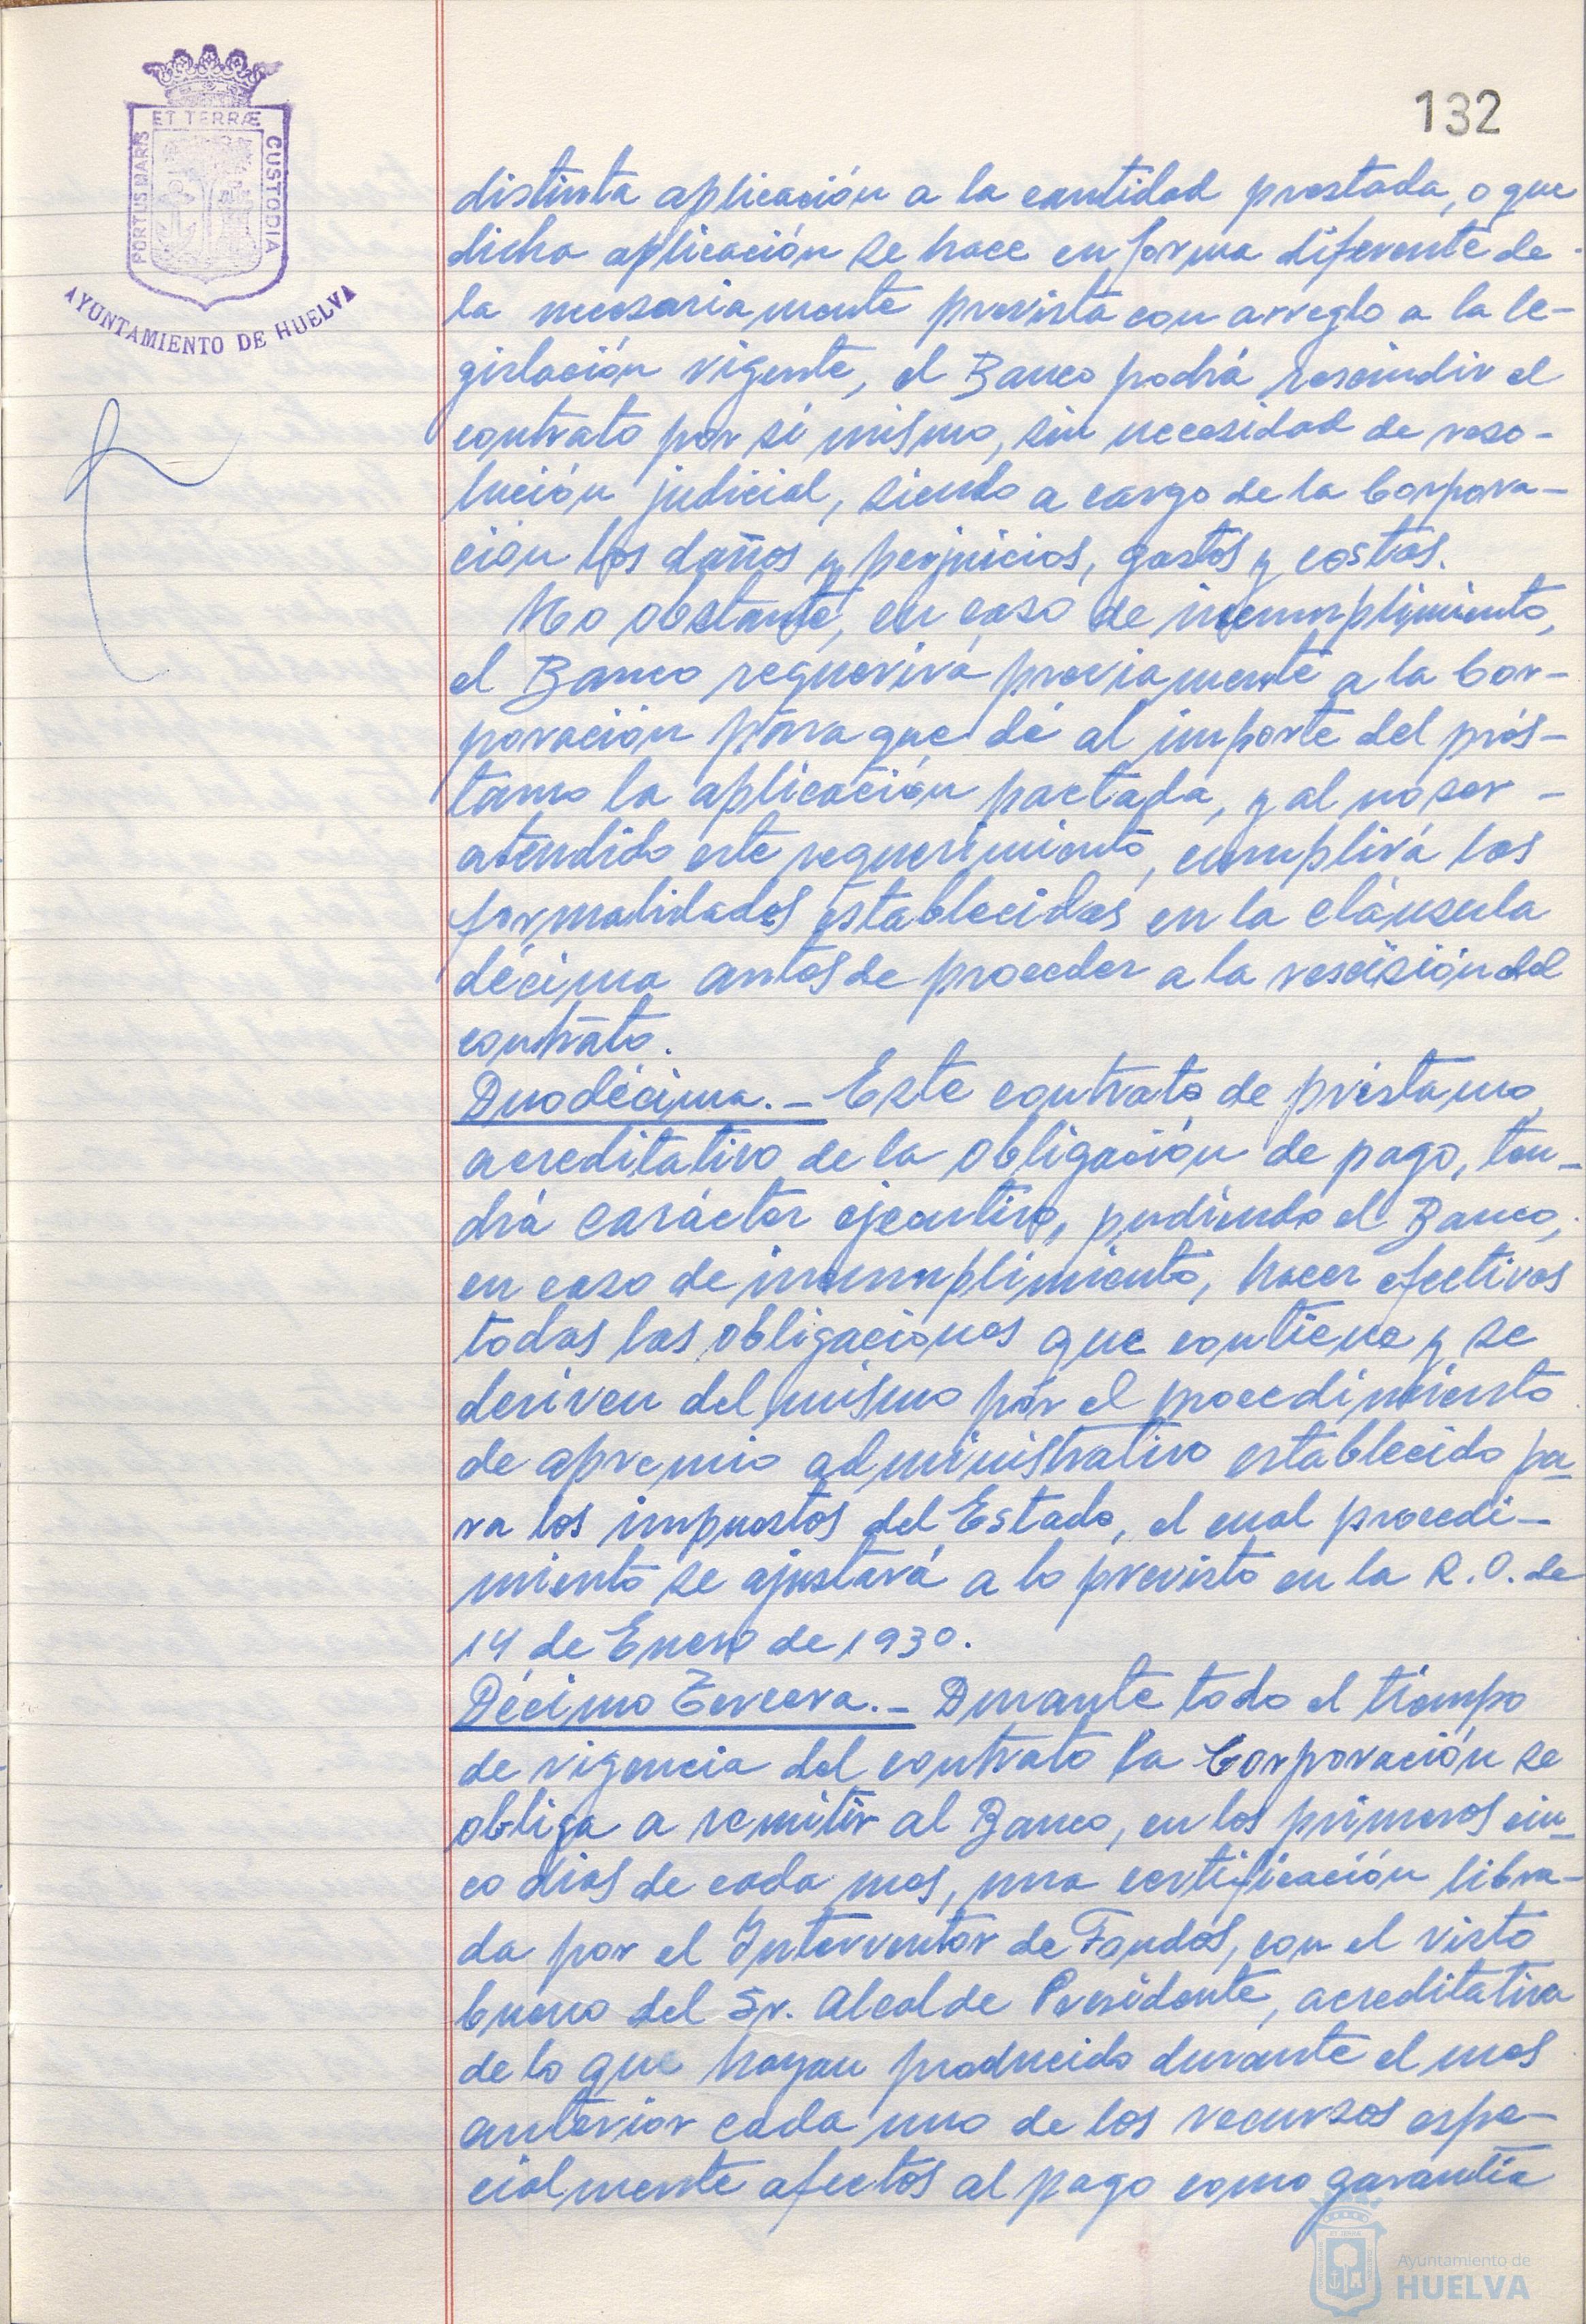 132
ET TERRÆ
PORTUS MARIS
CUSTODIA
AYUNTAMIENTO DE HUELVA
distinta aplicación a la cantidad prestada, o que
dicha aplicación se hace en forma diferente de
la necesariamente prevista con arreglo a la le-
gislación vigente, el Banco podrá rescindir el
contrato por sí mismo, sin necesidad de reso-
lución judicial, siendo a cargo de la Corpora-
ción los daños y perjuicios, gastos y costas.
No obstante, en caso de incumplimiento,
el Banco requerirá previamente a la Cor-
poración para que dé al importe del prés-
tamo la aplicación pactada, y al no ser -
atendido este requerimiento, cumplirá las
formalidades establecidas en la cláusula
décima antes de proceder a la rescisión del
contrato.
Duodécima.- Este contrato de préstamo
acreditativo de la obligación de pago, ten-
drá carácter ejecutivo, pudiendo el Banco,
en caso de incumplimiento, hacer efectivas
todas las obligaciones que contiene y se
deriven del mismo por el procedimiento
de apremio administrativo establecido pa-
ra los impuestos del Estado, el cual procedi-
miento se ajustará a lo previsto en la R.O. de
14 de Enero de 1930.
Décimo Tercera.- Durante todo el tiempo
de vigencia del contrato la Corporación se
obliga a remitir al Banco, en los primeros cin-
co días de cada mes, una certificación libra-
da por el Interventor de Fondos, con el visto
bueno del Sr. Alcalde Presidente, acreditativa
de lo que hayan producido durante el mes
anterior cada uno de los recursos espe-
cialmente afectos al pago como garantía
Ayuntamiento de
HUELVA